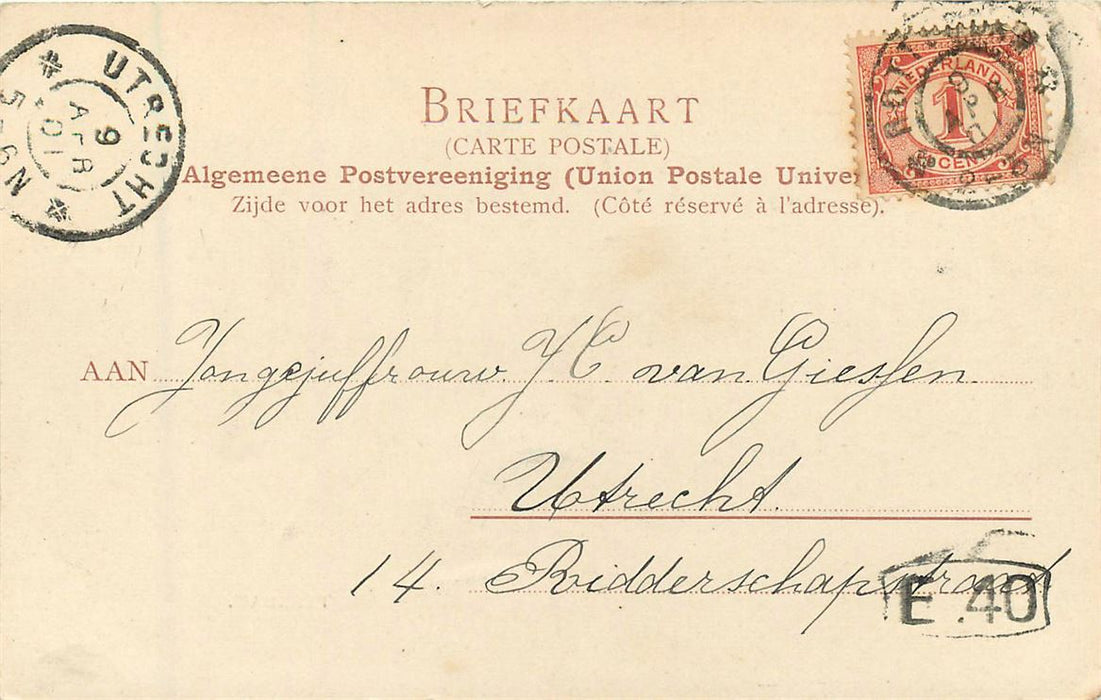 UTRECHT
9
APR
01
5-6N
NEDERLAND
1
CENT
BRIEFKAART
(CARTE POSTALE)
Algemeene Postvereeniging (Union Postale Unive
Zijde voor het adres bestemd. (Côté réservé à l'adresse).
AAN Jongejuffrouw J C. van Giessen
Utrecht.
14. Ridderschapstraat
E .40